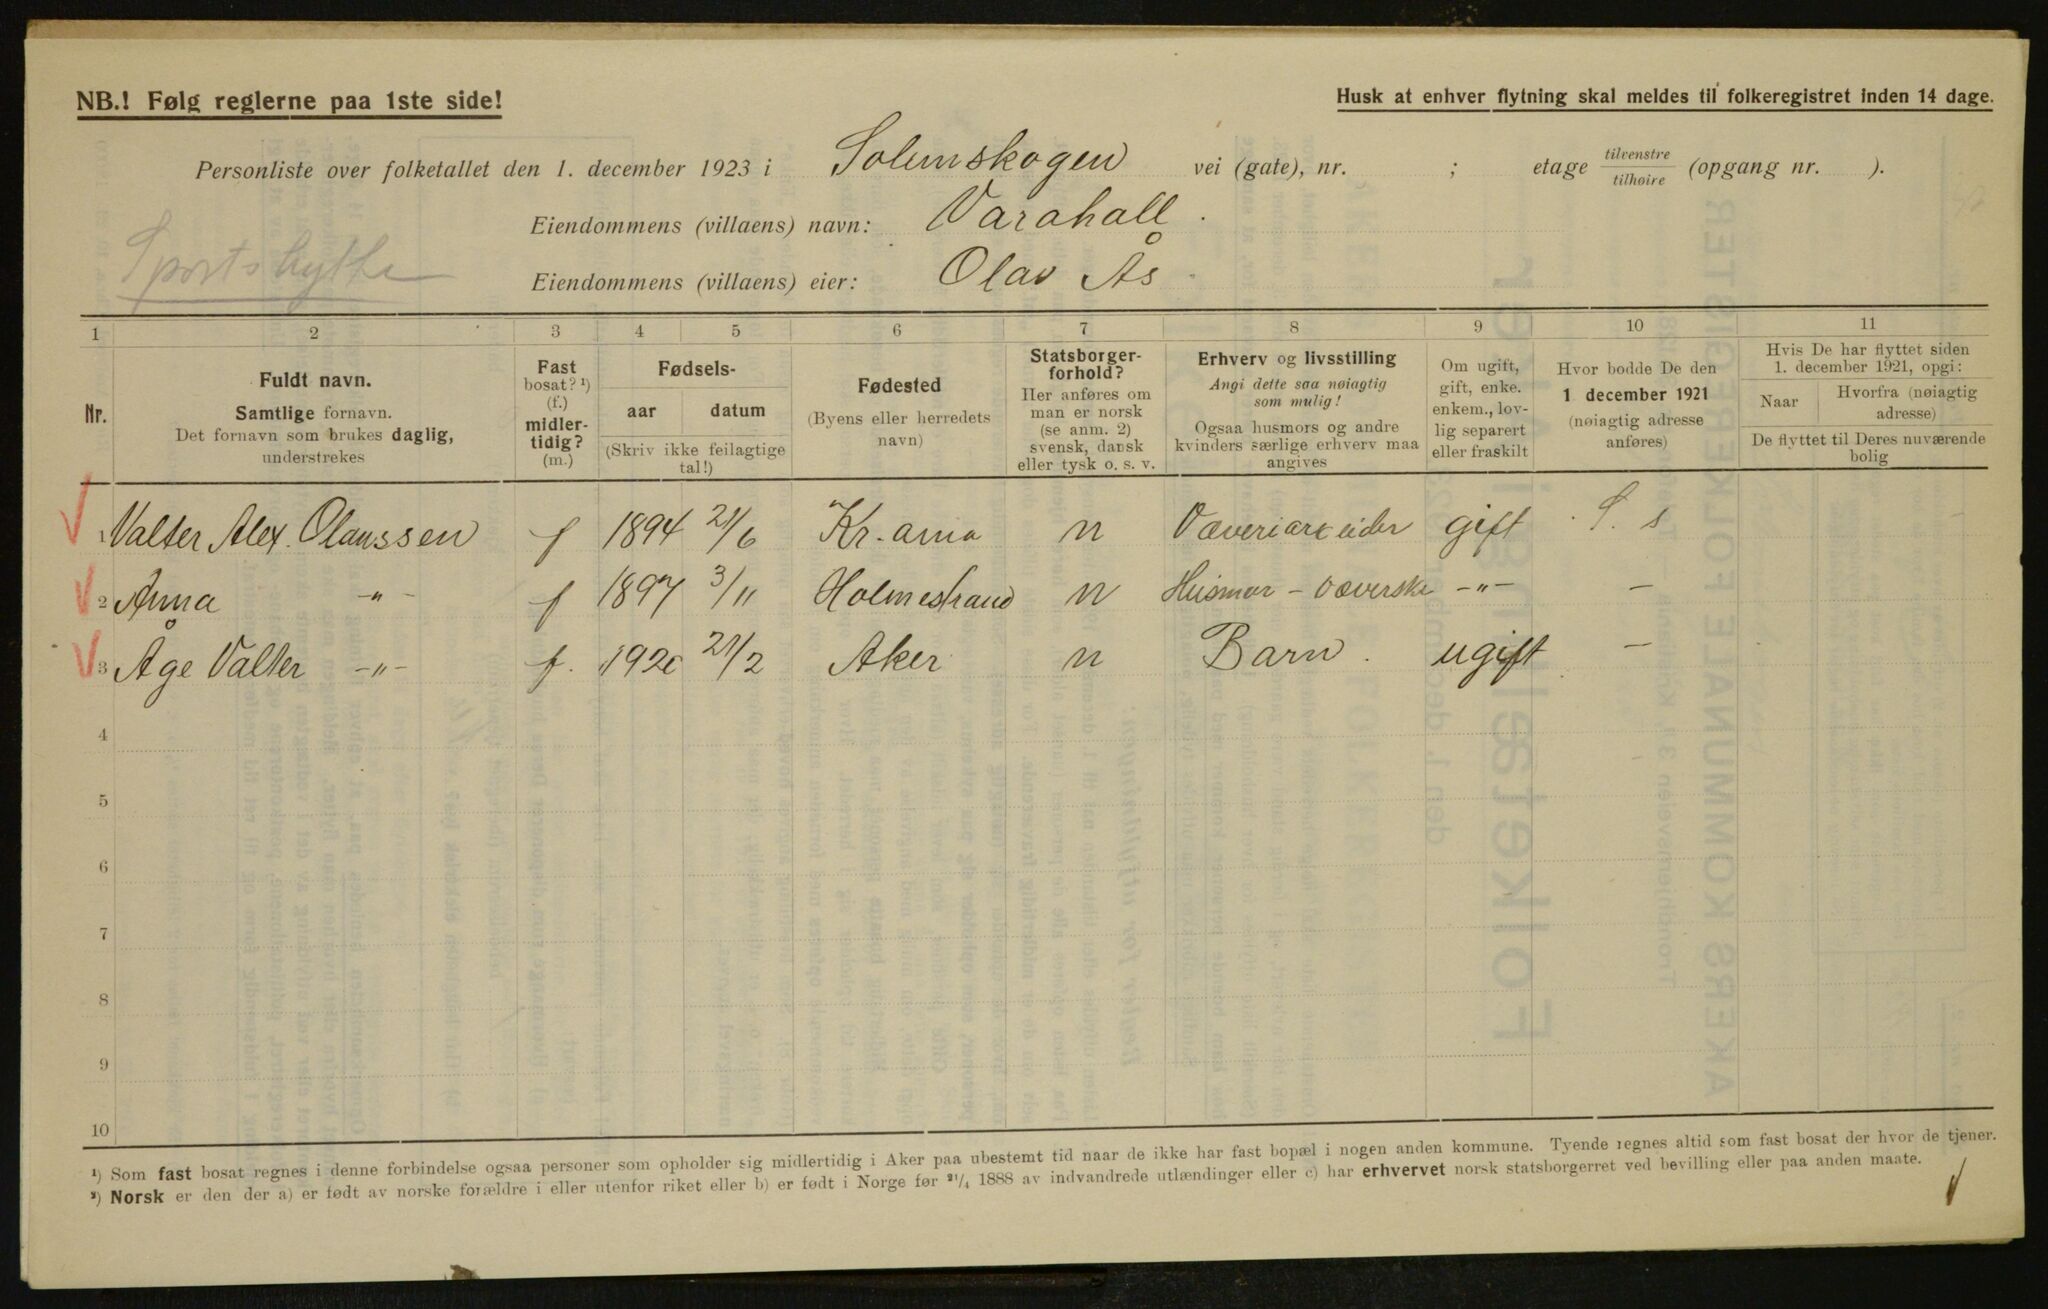 NB.! Følg reglerne paa 1ste side!
Husk at enhver flytning skal meldes til folkeregistret inden 14 dage.
Personliste over folketallet den 1. december 1923 i Solemskogen vei (gate), nr. ; etage tilvenstre tilhøire (opgang nr. ).
Eiendommens (villaens) navn: Varahall
Sportshytte
Eiendommens (villaens) eier: Olav Ås
1 2 3 4 5 6 7 8 9 10 11
Nr.
Fuldt navn.
Samtlige fornavn.
Det fornavn som brukes daglig,
understrekes
Fast
bosat? ¹)
(f.)
midler-
tidig?
(m.)
Fødsels-
aar datum
(Skriv ikke feilagtige
tal!)
Fødested
(Byens eller herredets
navn)
Statsborger-
forhold?
Her anføres om
man er norsk
(se anm. 2)
svensk, dansk
eller tysk o. s. v.
Erhverv og livsstilling
Angi dette saa nøiagtig
som mulig!
Ogsaa husmors og andre
kvinders særlige erhverv maa
angives
Om ugift,
gift, enke.
enkem., lov-
lig separert
eller fraskilt
Hvor bodde De den
1 december 1921
(nøiagtig adresse
anføres)
Hvis De har flyttet siden
1. december 1921, opgi:
Naar
Hvorfra (nøiagtig
adresse)
De flyttet til Deres nuværende
bolig
1 Valter Alex. Olaussen f 1894 21/6 Kr.ania n Væveriarbeider gift S. s
2 Anna -"- f 1897 3/11 Holmestrand n Husmor - Væverske -"- -
3 Åge Valter -"- f. 1920 21/2 Aker n Barn. ugift -
4
5
6
7
8
9
10
¹) Som fast bosat regnes i denne forbindelse ogsaa personer som opholder sig midlertidig i Aker paa ubestemt tid naar de ikke har fast bopæl i nogen anden kommune. Tyende regnes altid som fast bosat der hvor de tjener.
²) Norsk er den der a) er født av norske forældre i eller utenfor riket eller b) er født i Norge før ²¹/₄ 1888 av indvandrede utlændinger eller c) har erhvervet norsk statsborgerret ved bevilling eller paa anden maate.